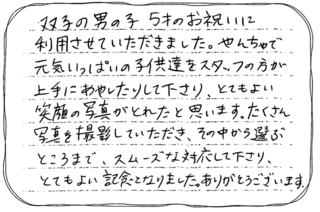 双子の男の子 5才のお祝いに
利用させていただきました。やんちゃで
元気いっぱいの子供達をスタッフの方が
上手にあやしたりして下さり、とてもよい
笑顔の写真がとれたと思います。たくさん
写真を撮影していただき、その中から選ぶ
ところまで、スムーズな対応して下さり、
とてもよい記念となりました。ありがとうございます。